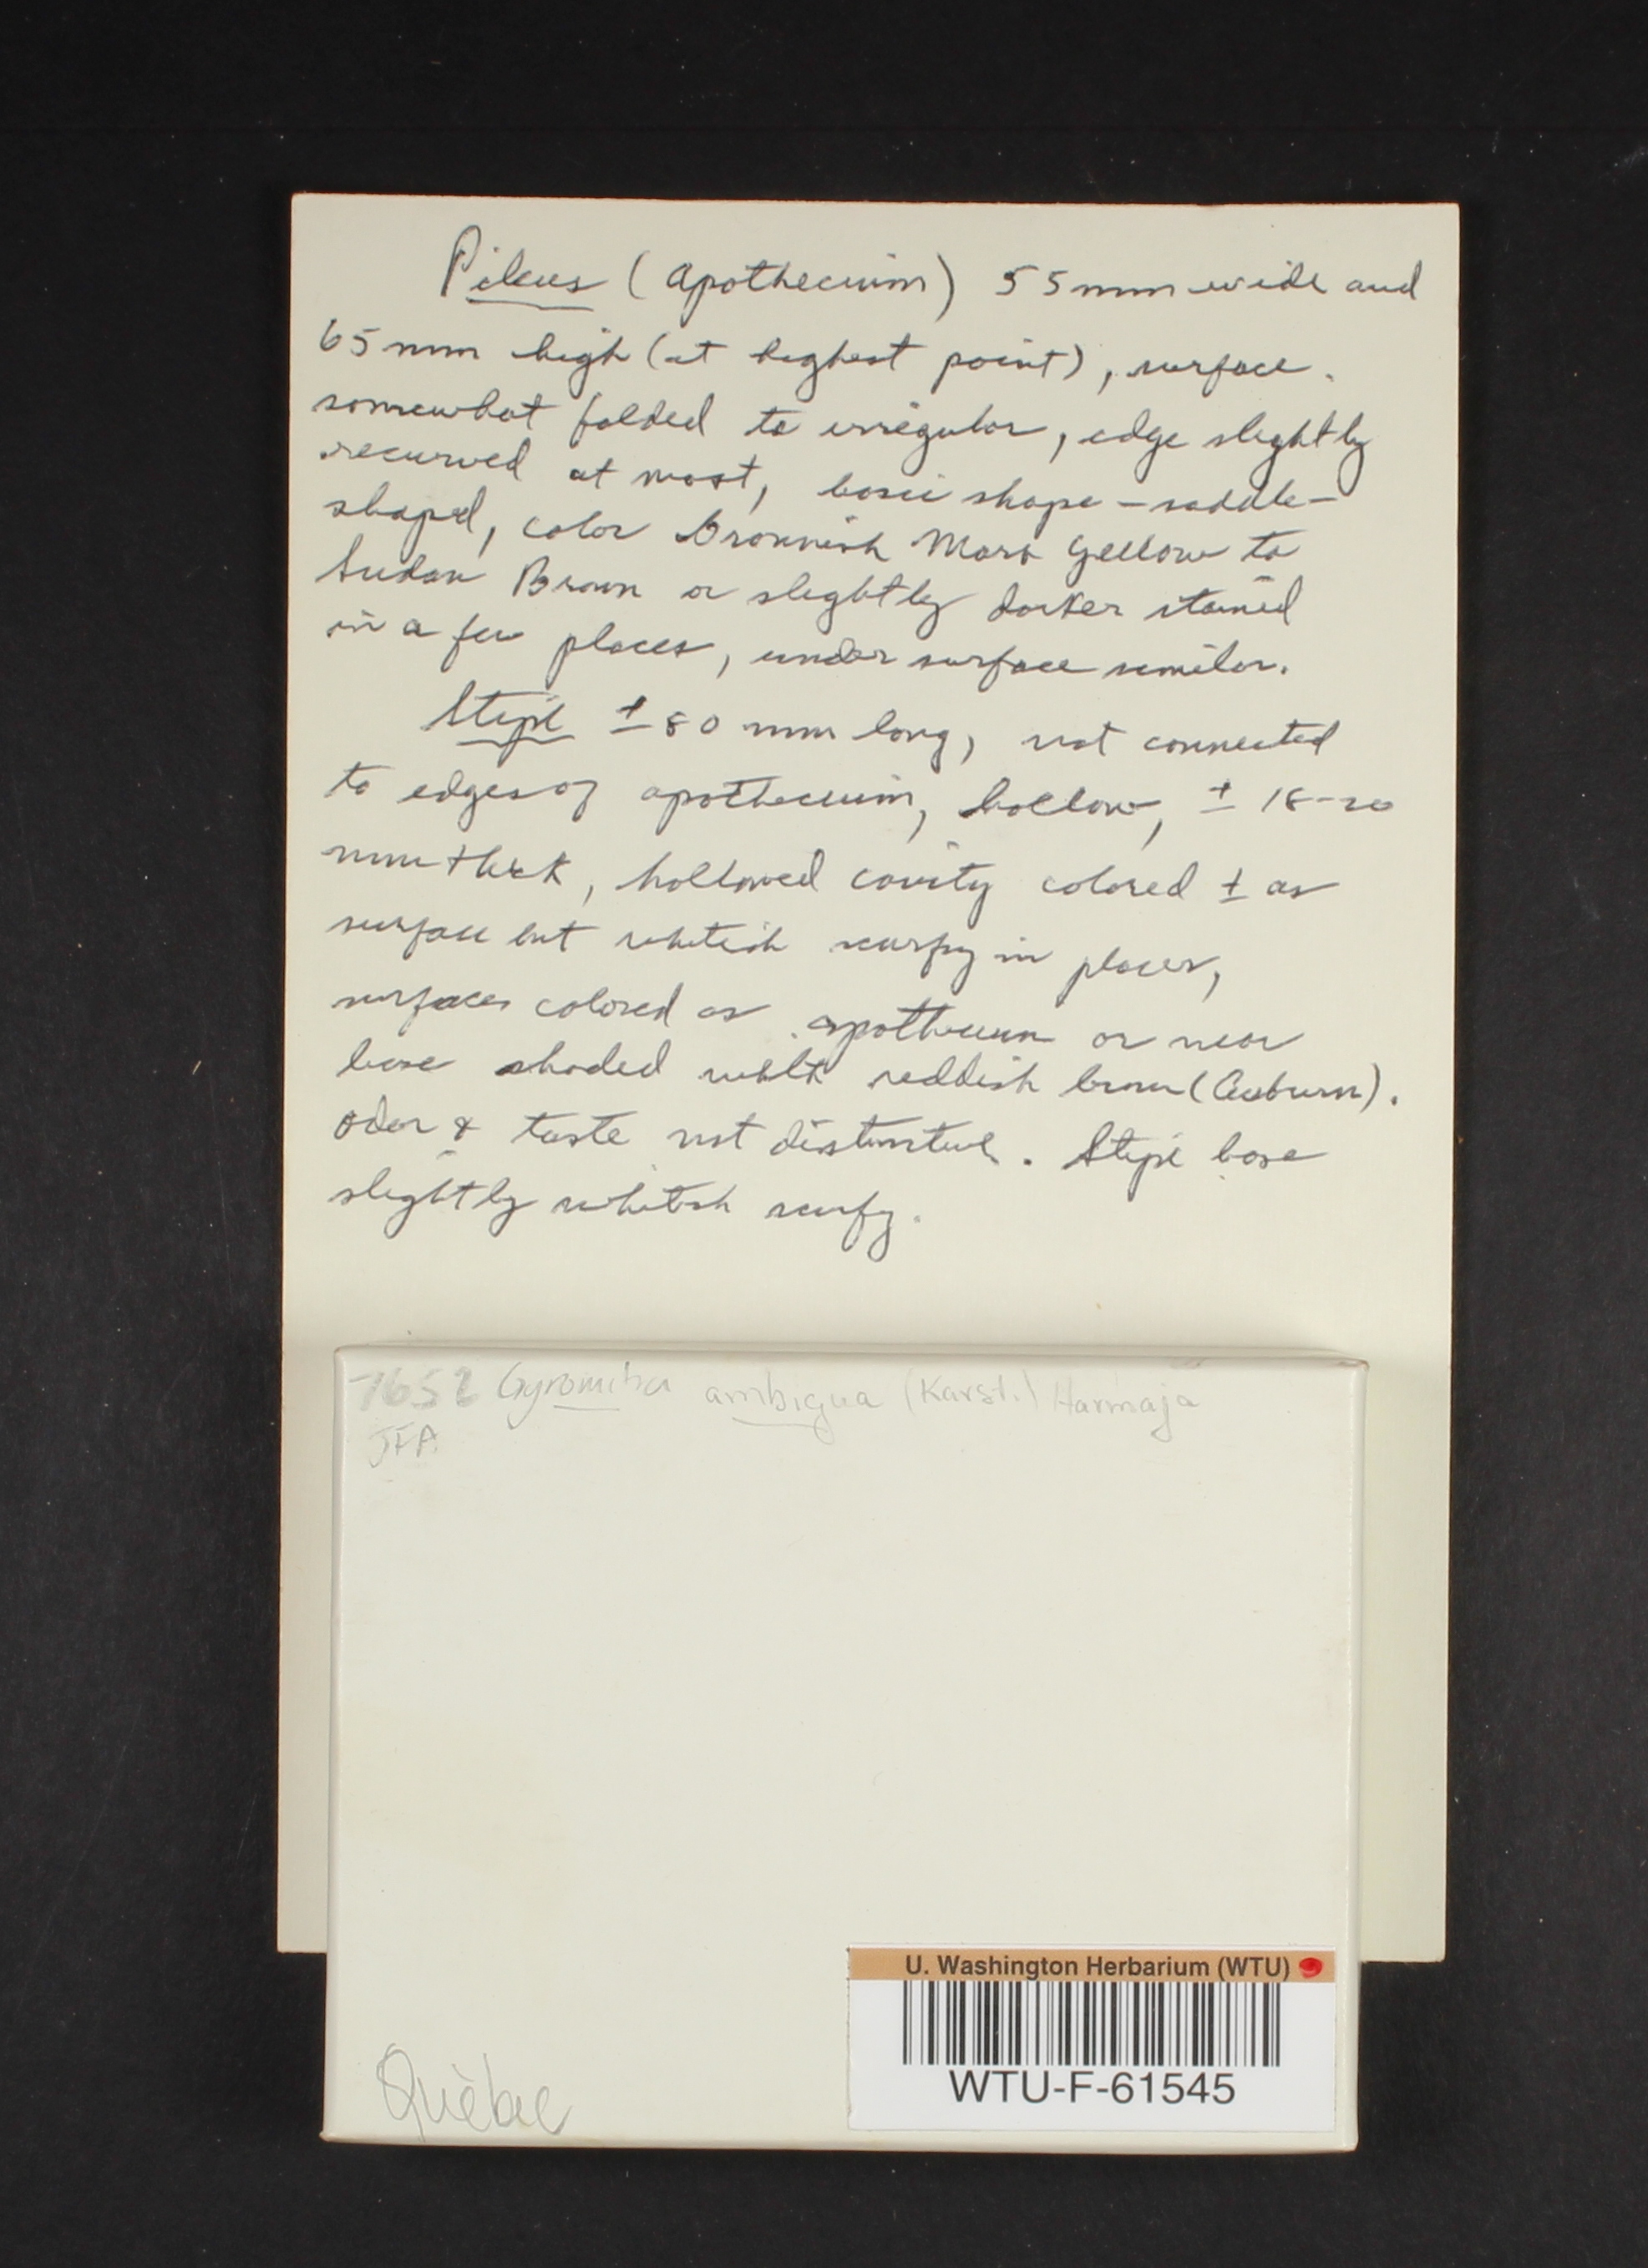 Pileus (apothecium) 55 mm wide and
65 mm high (at highest point), surface
somewhat folded to irregular, edge slightly
recurved at most, basic shape – saddle–
shaped, color Brownish Mars Yellow to
Sudan Brown or slightly darker stained
in a few places, under surface similar.
Stipe ± 80 mm long, not connected
to edges of apothecium, hollow, ± 18–20
mm thick, hollowed cavity colored ± as
surface but whitish scurfy in places,
surfaces colored as apothecium or near
base shaded with reddish brown (Auburn).
Odor & taste not distinctive. Stipe base
slightly whitish scurfy.
7652 Gyromitra ambigua (Karst.) Harmaja
JFA
Québec
U. Washington Herbarium (WTU)
WTU-F-61545